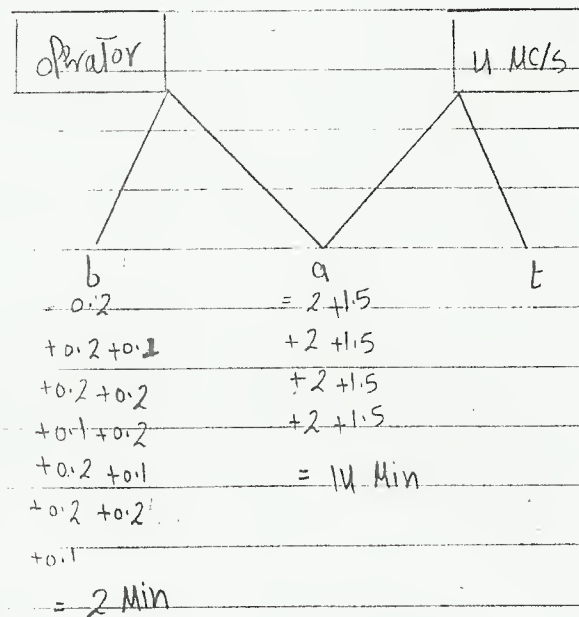 operator
4 MC/s
b
a
t
= 0.2
+0.2 +0.1
+0.2 +0.2
+0.1 +0.2
+0.2 +0.1
+0.2 +0.2
+0.1
= 2 Min
= 2 +1.5
+2 +1.5
+2 +1.5
+2 +1.5
= 14 Min